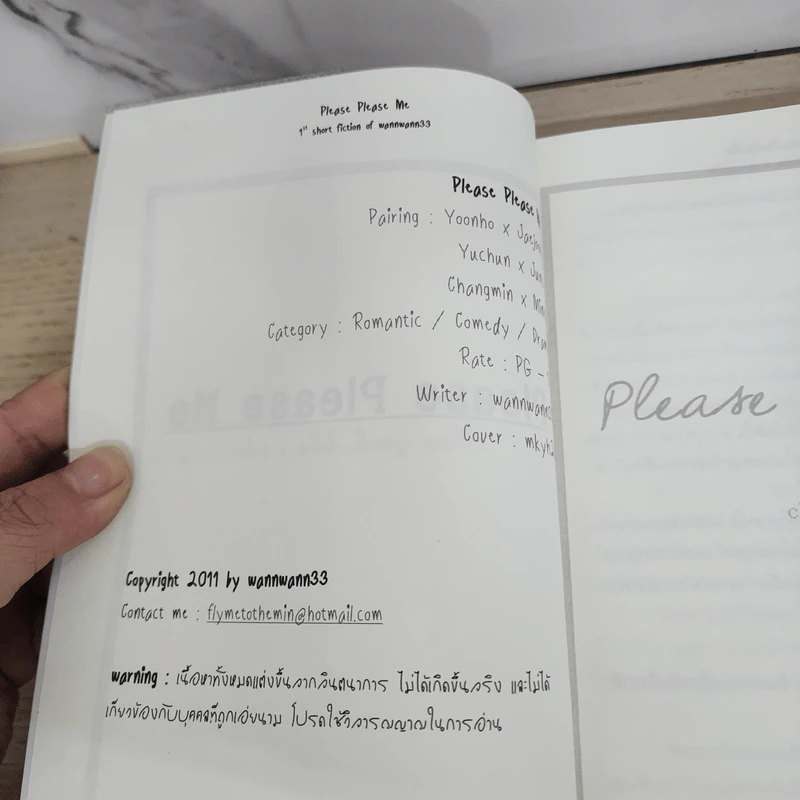 Please Please Me
1st short fiction of wannwann33
Please Please
Pairing : Yoonho x
Yuchun x
Changmin x
Category : Romantic / Comedy /
Rate : PG -
Writer :
Cover :
Copyright 2011 by wannwann33
Contact me : flymetothemin@hotmail.com
warning : เนื้อหาทั้งหมดแต่งขึ้นจากจินตนาการ ไม่ได้เกิดขึ้นจริง และไม่ได้
เกี่ยวข้องกับบุคคลที่ถูกเอ่ยนาม โปรดใช้วิจารณญาณในการอ่าน
Please